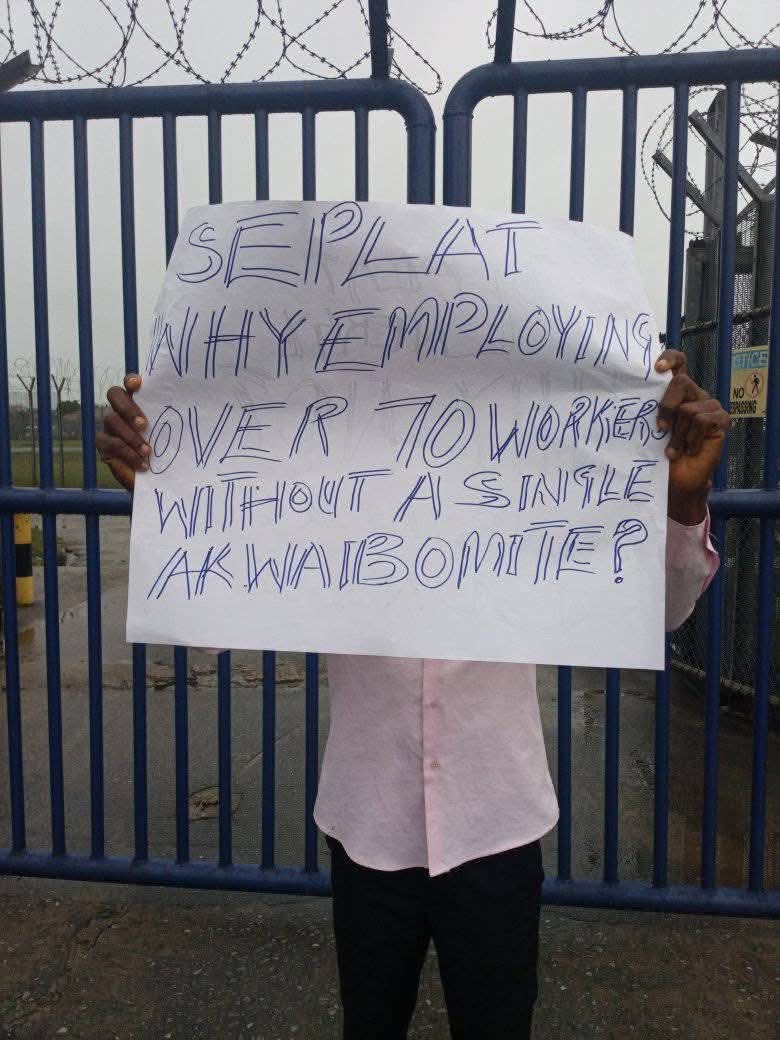 SEPLAT
WHY EMPLOYING
OVER 70 WORKERS
WITHOUT A SINGLE
AKWAIBOMITE?
NO